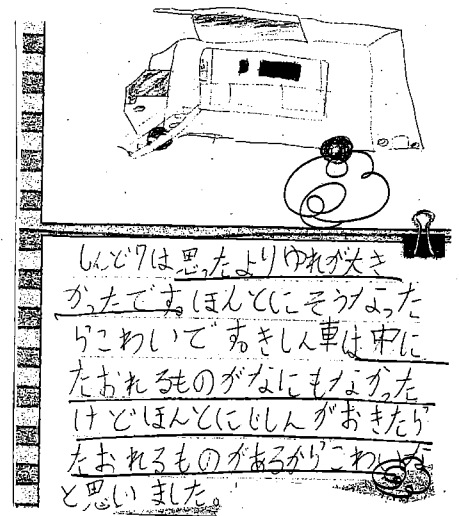 しんど7は思ったよりゆれが大き
かったです。ほんとにそうなった
らこわいです。きしん車は中に
たおれるものがなにもなかった
けどほんとにじしんがおきたら
たおれるものがあるからこわいな
と思いました。